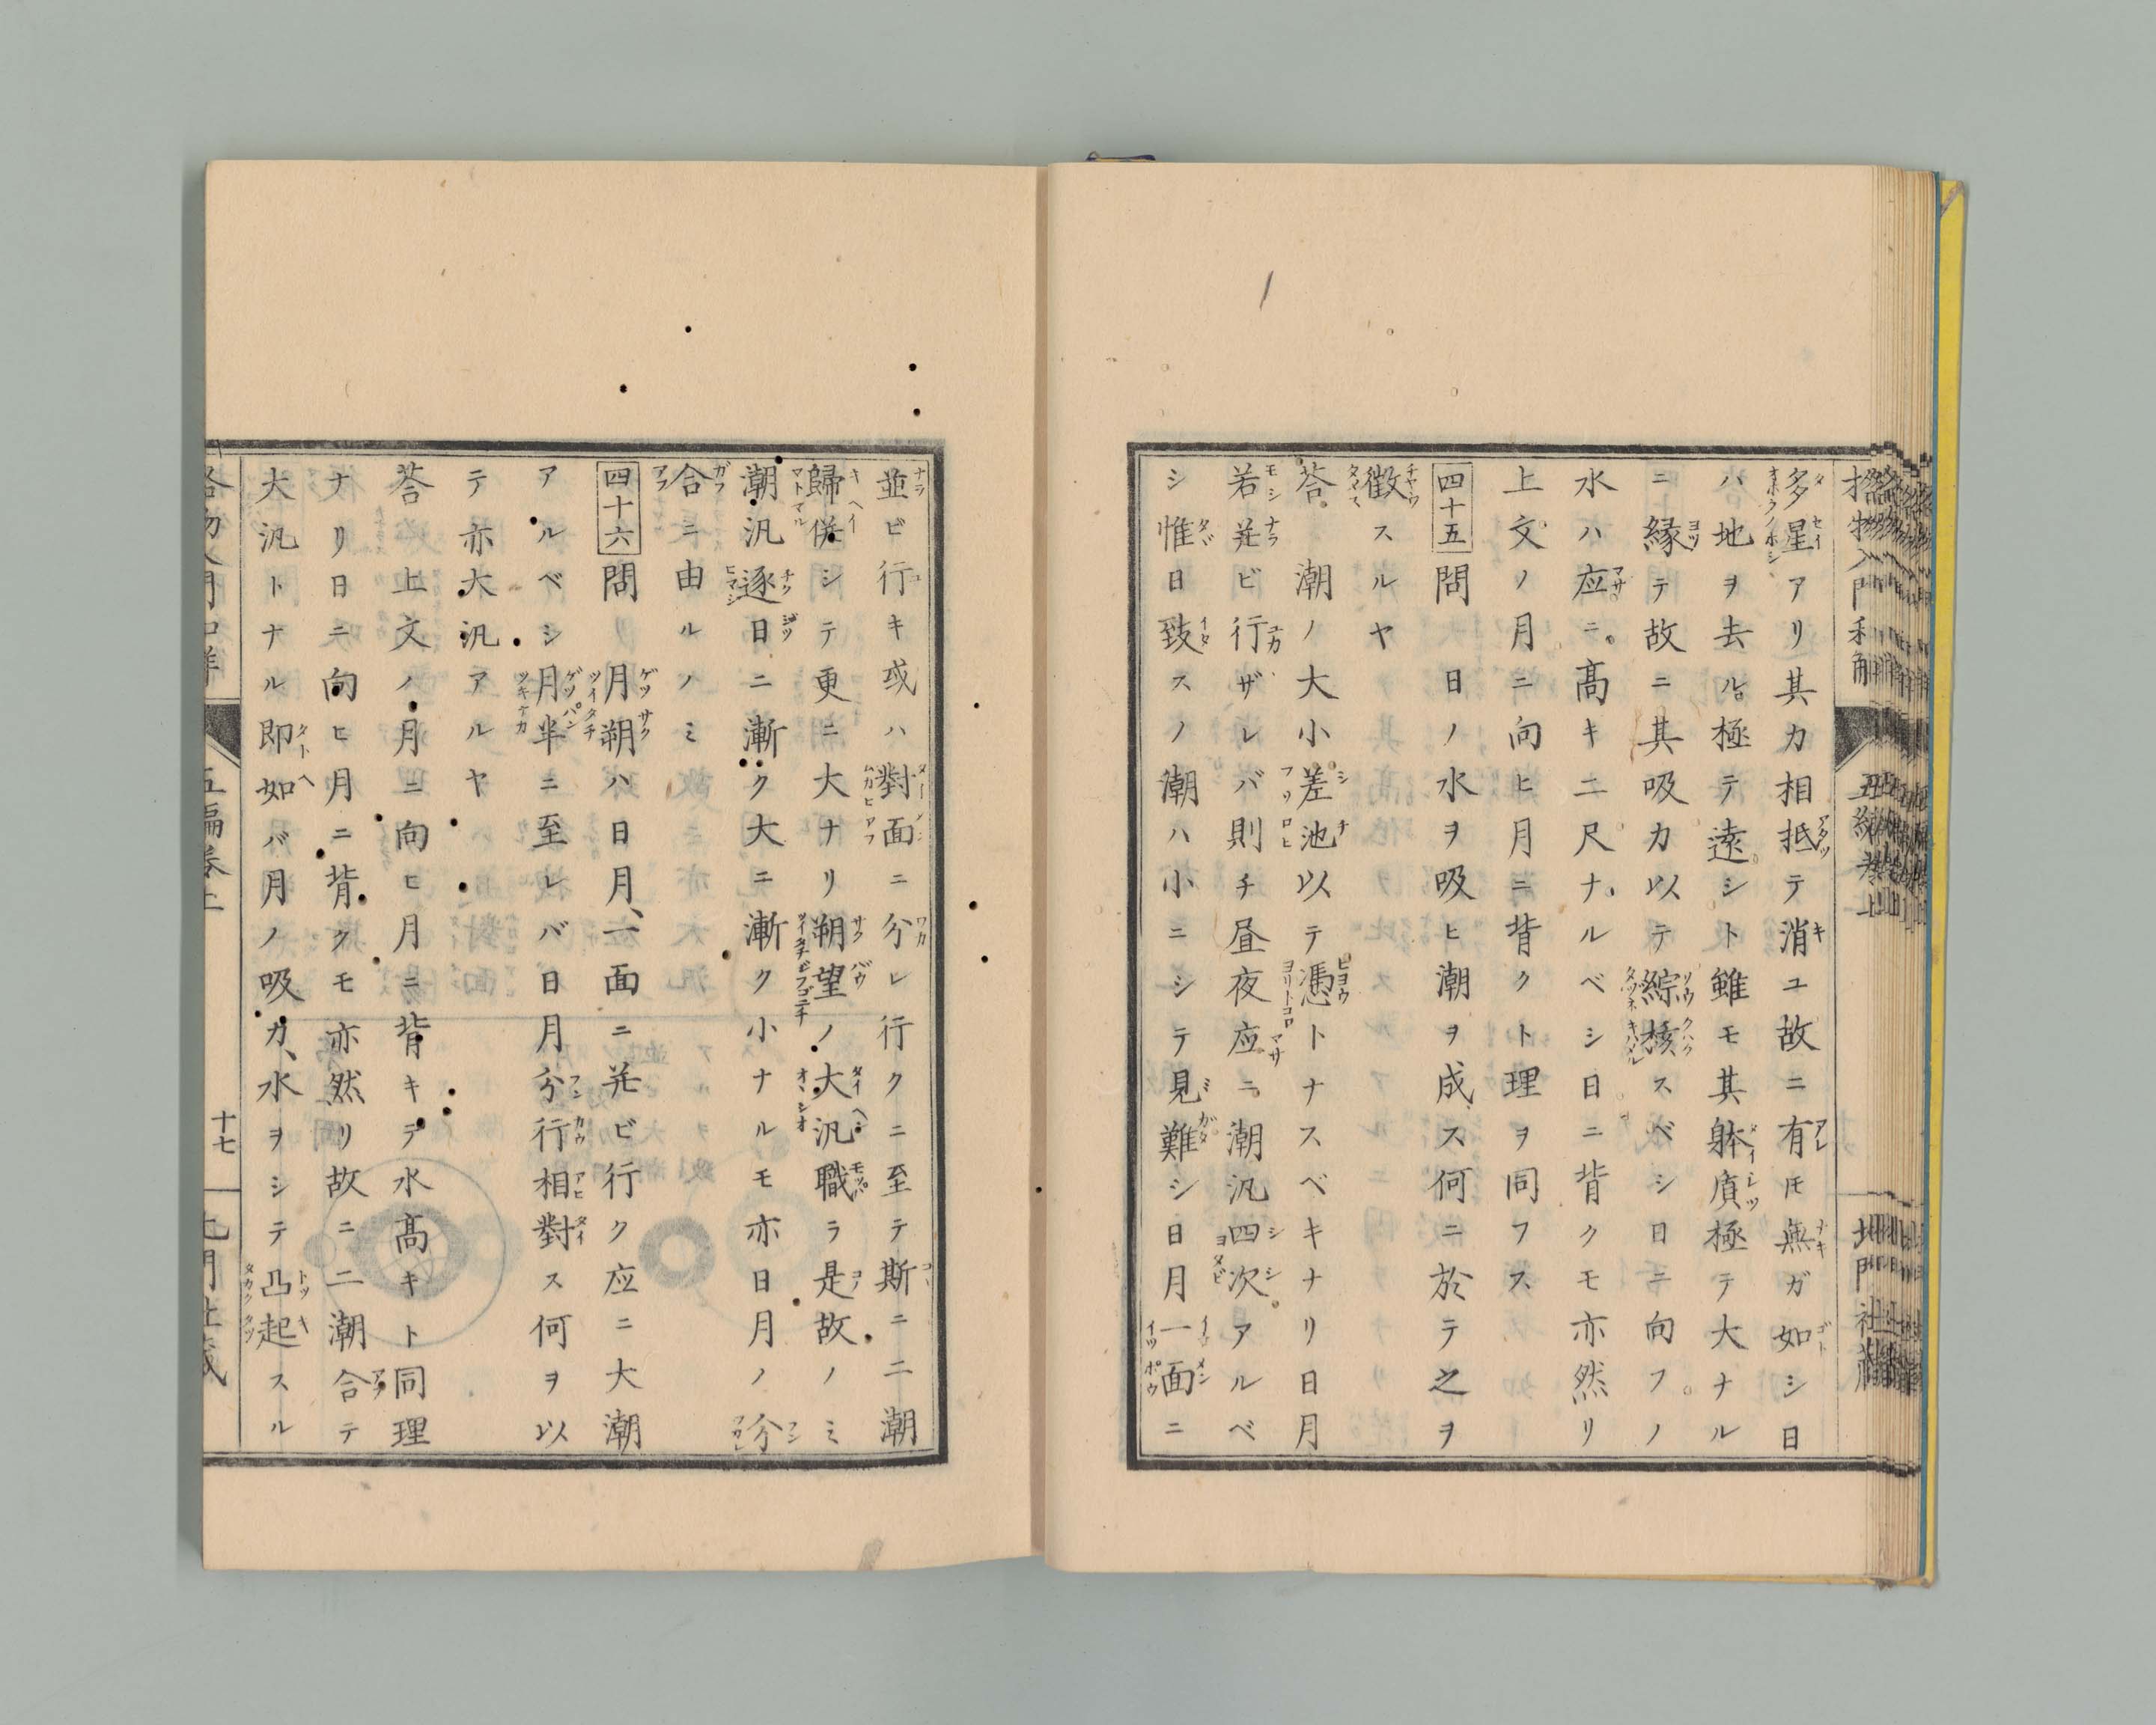 多星アリ其力相抵テ消ユ故ニ有モ無ガ如シ日
ハ地ヲ去ル極テ遠シト雖モ其躰質極テ大ナル
ニ縁テ故ニ其吸力以テ綜核スベシ日ニ向フノ
水ハ応ニ高キ二尺ナルベシ日ニ背クモ亦然リ
上文ノ月ニ向ヒ月ニ背クト理ヲ同フス
四十五 問 日ノ水ヲ吸ヒ潮ヲ成ス何ニ於テ之ヲ
徴スルヤ
荅 潮ノ大小差池以テ憑トナスベキナリ日月
若並ビ行ザレバ則チ昼夜応ニ潮汎四次アルベ
シ惟日致スノ潮ハ小ニシテ見難シ日月一面ニ
並ビ行キ或ハ對面ニ分レ行クニ至テ斯ニ二潮
歸併シテ更ニ大ナリ朔望ノ大汎職ラ是故ノミ
潮汎逐日ニ漸ク大ニ漸ク小ナルモ亦日月ノ分
合ニ由ルノミ
四十六 問 月朔ハ日月、一面ニ並ビ行ク応ニ大潮
アルベシ月半ニ至レバ日月分行相對ス何ヲ以
テ亦大汎アルヤ
荅 上文ノ月ニ向ヒ月ニ背キテ水高キト同理
ナリ日ニ向ヒ月ニ背クモ亦然リ故ニ二潮合テ
大汎トナル即如バ月ノ吸力、水ヲシテ凸起スル
五編巻上
十七